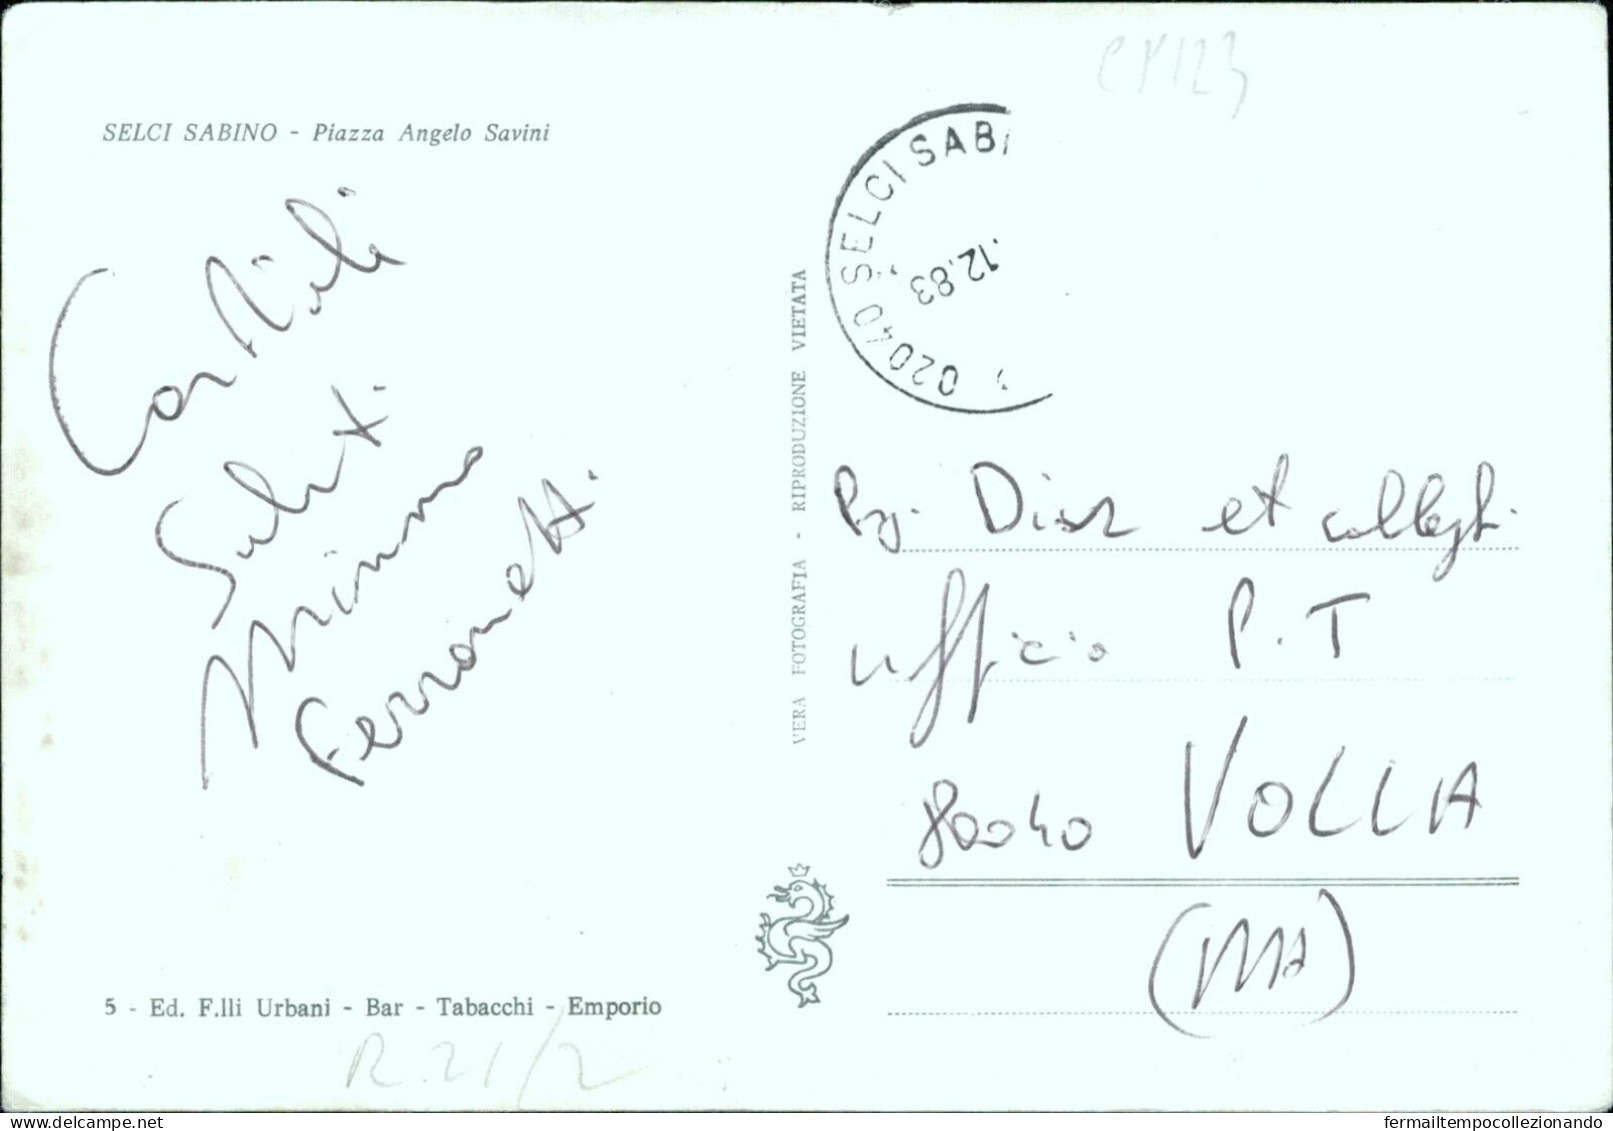 CP123
SELCI SABINO - Piazza Angelo Savini
02040 SELCI SABI
.12.83
Cordiali
Saluti
Mimmo
Ferronetti
VERA FOTOGRAFIA - RIPRODUZIONE VIETATA
Diaz et colleghi
ufficio P.T
80040 VOLLA
(NA)
5 - Ed. F.lli Urbani - Bar - Tabacchi - Emporio
R.21/2
fermailtempocollezionando